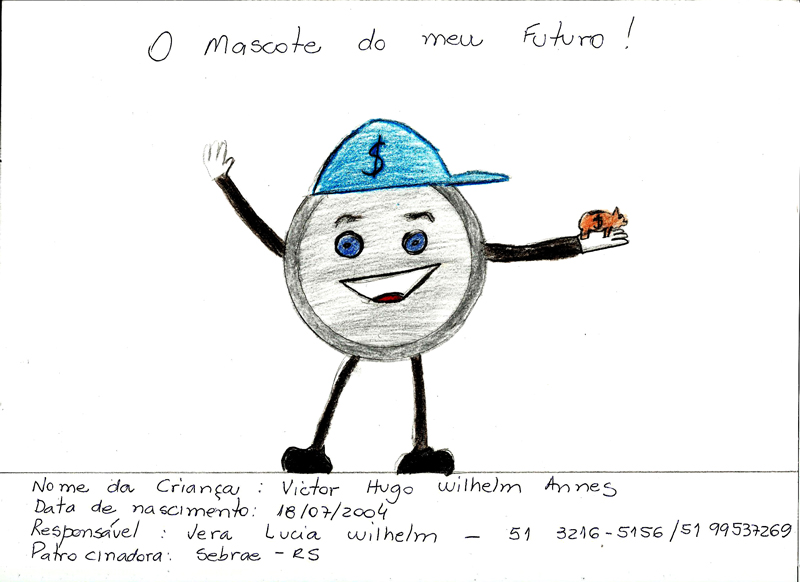 O Mascote do meu Futuro!
$
$
Nome da Criança : Victor Hugo Wilhelm Annes
Data de nascimento: 18/07/2004
Responsável : Vera Lucia Wilhelm - 51 3216-5156 /51 99537269
Patrocinadora: Sebrae - RS